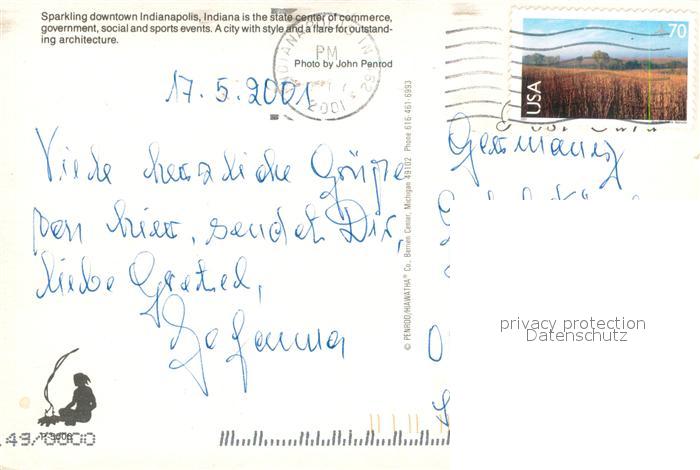 Sparkling downtown Indianapolis, Indiana is the state center of commerce,
government, social and sports events. A city with style and a flare for outstand-
ing architecture.
Photo by John Penrod
INDIANA
PM
2001
70
USA
17.5.2001
Viele herzliche Grüße
von hier, sendet Dir,
liebe Gretel,
Johanna
© PENROD/HIAWATHA® Co. Berrien Center, Michigan 49102 Phone 616-461-6993
Germany
privacy protection
Datenschutz